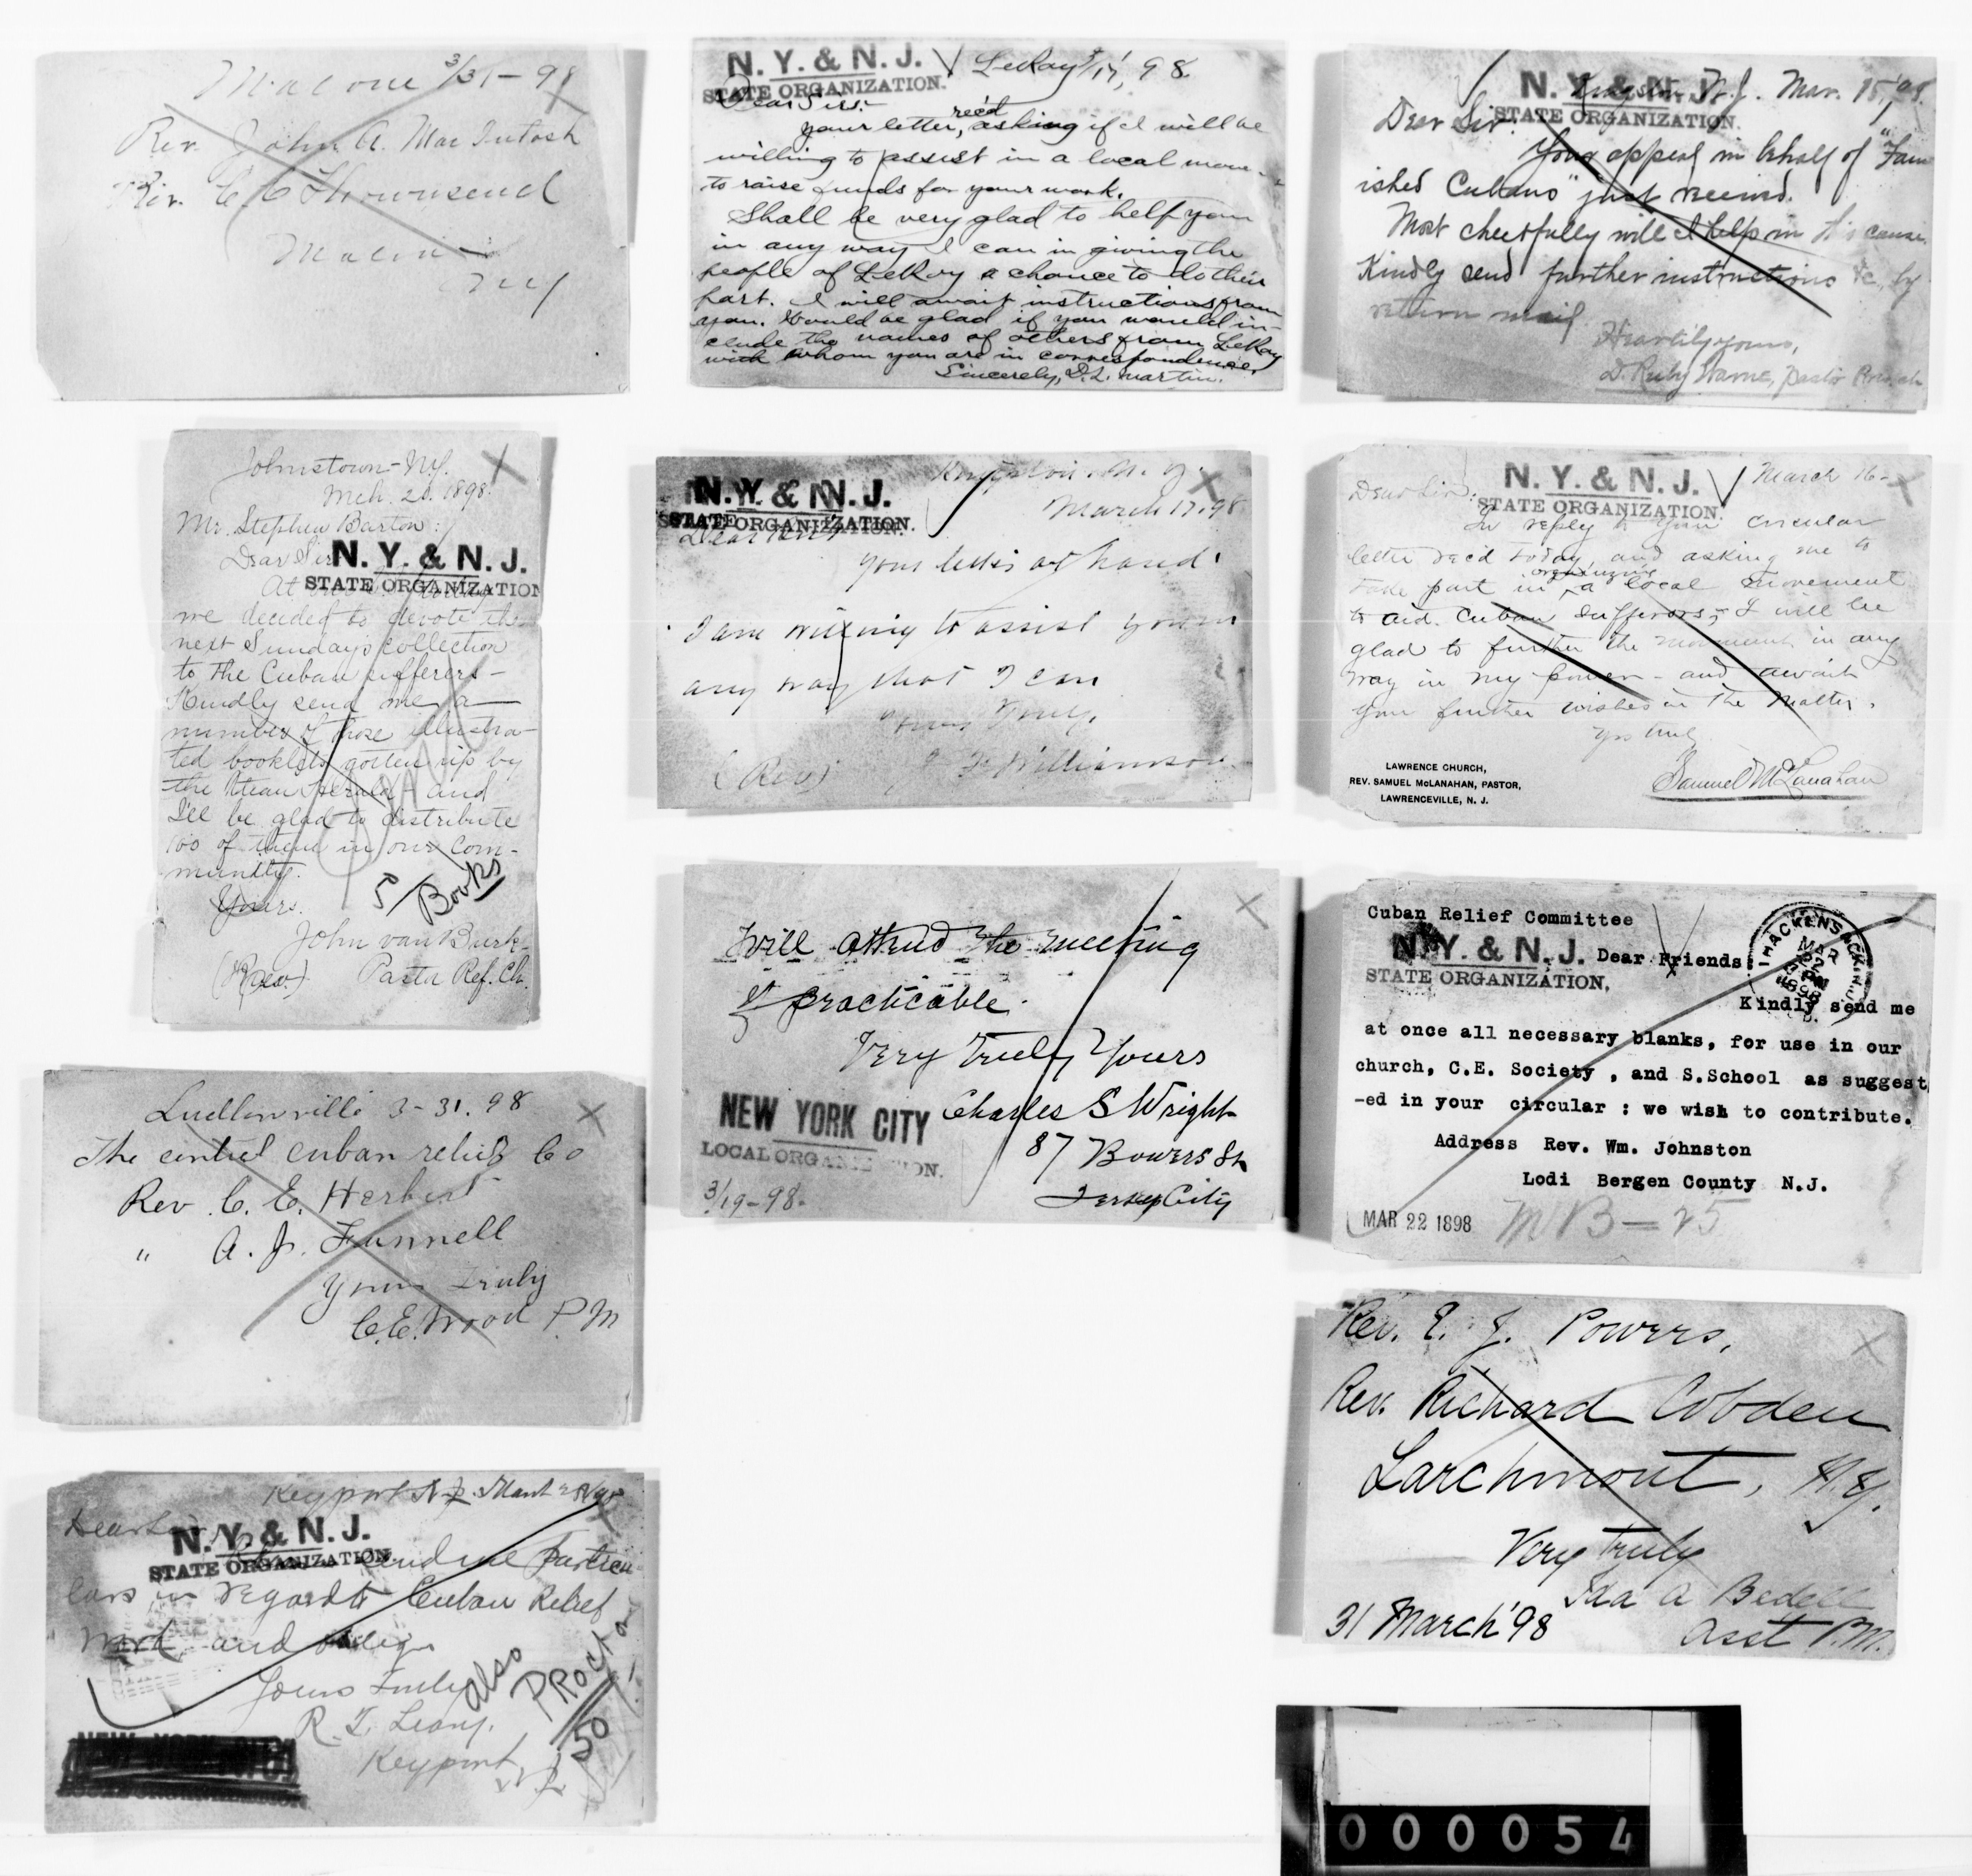 Malone 3/31-98
Rev. John A. MacIntosh
Rev. C C Thownsend
Malone
N.Y.
N. Y. & N. J.
STATE ORGANIZATION.
LeRoy 3/17, 98.
Dear Sirs:-
rec'd
your letter, asking if I will be
willing to assist in a local move-
to raise funds for your work.
Shall be very glad to help you
in any way I can in giving the
people of LeRoy a chance to do their
part. I will await instructions from
you. Would be glad if you would in-
clude the names of others from LeRoy
with whom you are in correspondence.
Sincerely, D. L. Martin.
N. Y. & N. J.
STATE ORGANIZATION.
Kingston N.J. Mar. 15, '98.
Dear Sir.
Your appeal in behalf of "Fam
ished Cubans" just received.
Most cheerfully will I help in this cause.
Kindly send further instructions &c., by
return mail.
Heartily yours,
D. Ruby Warne, Pastor
Johnstown-N.Y.
Mch. 21. 1898.
Mr. Stephen Barton:
Dear Sir
N. Y. & N. J.
STATE ORGANIZATION
At
we decided to devote the
next Sunday's collection
to the Cuban sufferers-
Kindly send me a
number of those illustra-
ted booklets gotten up by
the Xtian Herald - and
I'll be glad to distribute
100 of them in our Com-
munity.
Yours.
50 Books
John van Burk
(Rev.) Pastor Ref. Ch.
N. Y. & N. J.
STATE ORGANIZATION.
Kingston N. Y.
March 17. 98
Dear
Your letter at hand.
I am willing to assist you in
any way that I can
Yours Truly,
(Rev) Williamson
N. Y. & N. J.
STATE ORGANIZATION.
March 16-
Dear Sir:
In reply to your circular
letter rec'd today and asking me to
take part in organizing a local movement
to aid Cuban sufferers, I will be
glad to further the movement in any
way in my power - and await
your further wishes in the matter.
Yrs truly
Samuel McLanahan
LAWRENCE CHURCH,
REV. SAMUEL McLANAHAN, PASTOR,
LAWRENCEVILLE, N. J.
Will attend the meeting
if practicable.
Very Truly Yours
Charles S Wright
87 Bowers St
Jersey City
NEW YORK CITY
LOCAL ORGANIZATION.
3/19-98-
Cuban Relief Committee
N. Y. & N. J.
STATE ORGANIZATION,
Dear Friends:
HACKENSACK, N.J.
MAR
Kindly send me
at once all necessary blanks, for use in our
church, C.E. Society , and S.School as suggest
-ed in your circular : we wish to contribute.
Address Rev. Wm. Johnston
Lodi Bergen County N.J.
MAR 22 1898
MB-25
Ludlowville 3-31. 98
The central cuban relief Co
Rev. C. E. Herbert
" A. J. Funnell
Yours Truly
C.E. Wood P.M
Rev. E. J. Powers,
Rev. Richard Cobden
Larchmont, N.Y.
Very truly
Ida A Bedell
Asst P.M.
31 March '98
Keyport N.J. March 28/98
Dear Sir
N. Y. & N. J.
STATE ORGANIZATION.
Please send me particu
lars in regard to Cuban Relief
Work and oblige
Yours Truly
R. T. Leary.
Keyport N.J.
also Proctor
50
000054